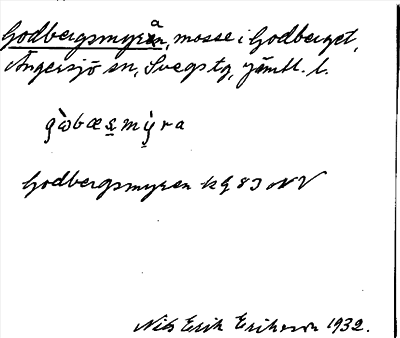 Godbergsmyra, mosse i Godberget,
Ängersjö sn, Svegs tg, Jämtl. l.
gὼbæʂmỳra
Godbergsmyren kg 83 NV
Nils Erik Eriksson 1932.